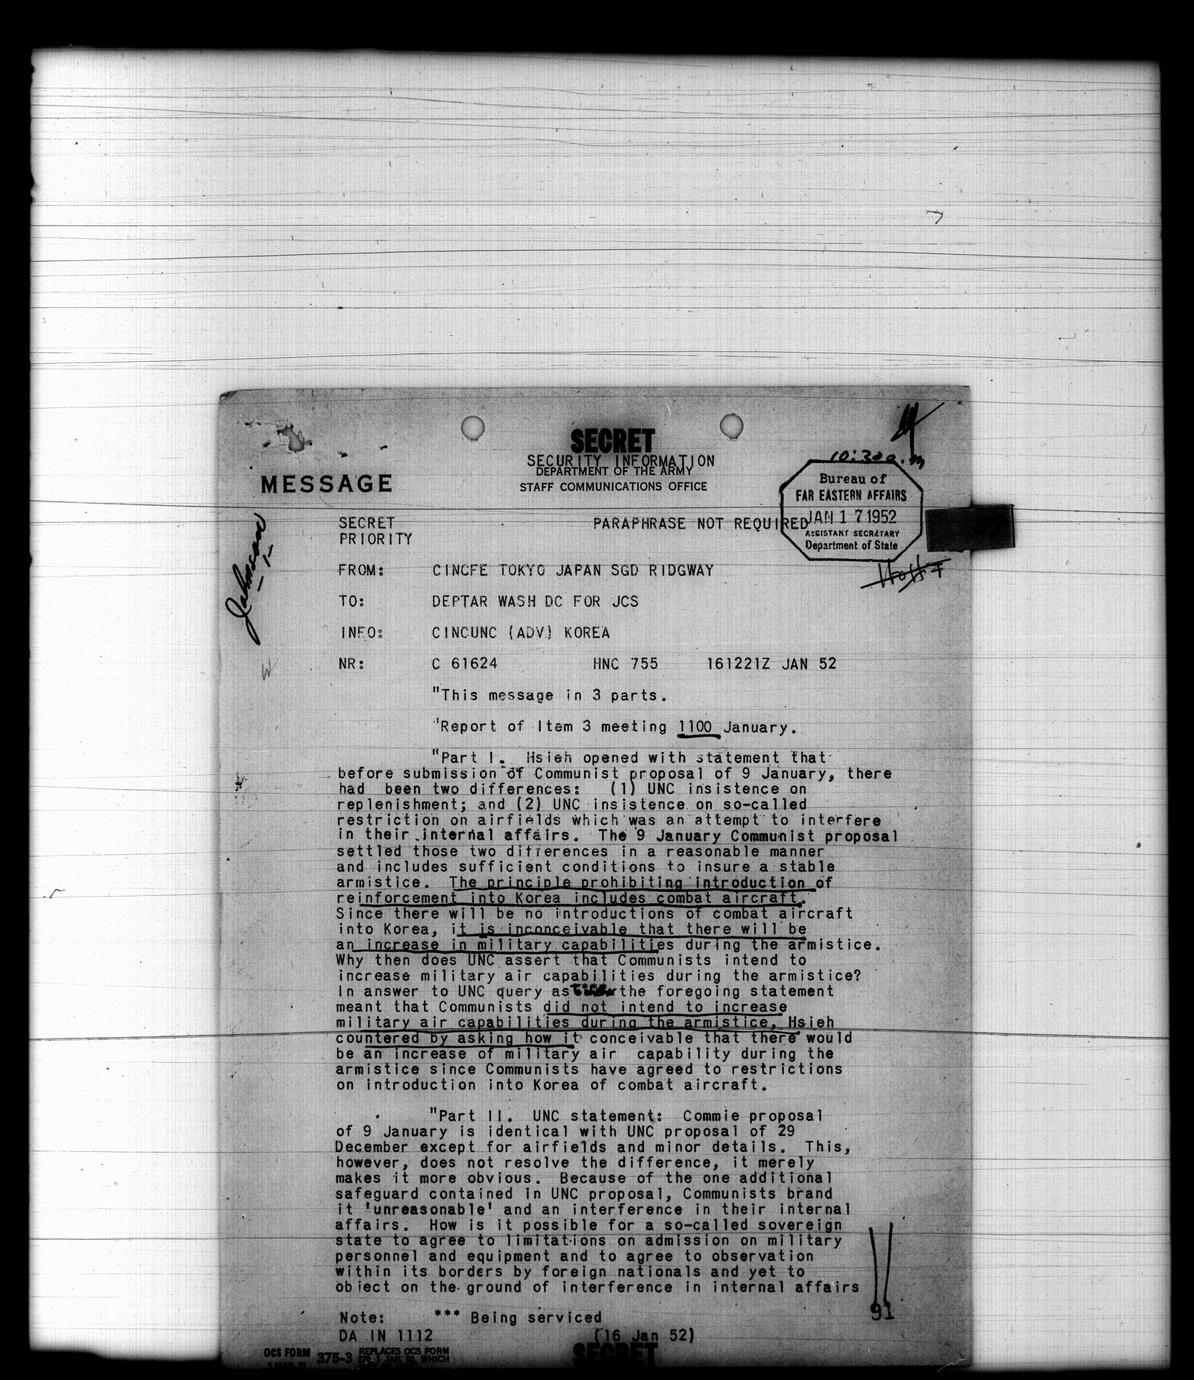 SECRET
SECURITY INFORMATION
DEPARTMENT OF THE ARMY
STAFF COMMUNICATIONS OFFICE
MESSAGE
10:30 a.m
Bureau of
FAR EASTERN AFFAIRS
JAN 17 1952
ASSISTANT SECRETARY
Department of State
Johnson
-1-
SECRET PARAPHRASE NOT REQUIRED
PRIORITY
FROM: CINCFE TOKYO JAPAN SGD RIDGWAY
TO: DEPTAR WASH DC FOR JCS
INFO: CINCUNC (ADV) KOREA
NR: C 61624 HNC 755 161221Z JAN 52
"This message in 3 parts.
'Report of Item 3 meeting 1100 January.
"Part I. Hsieh opened with statement that
before submission of Communist proposal of 9 January, there
had been two differences: (1) UNC insistence on
replenishment; and (2) UNC insistence on so-called
restriction on airfields which was an attempt to interfere
in their internal affairs. The 9 January Communist proposal
settled those two differences in a reasonable manner
and includes sufficient conditions to insure a stable
armistice. The principle prohibiting introduction of
reinforcement into Korea includes combat aircraft.
Since there will be no introductions of combat aircraft
into Korea, it is inconceivable that there will be
an increase in military capabilities during the armistice.
Why then does UNC assert that Communists intend to
increase military air capabilities during the armistice?
In answer to UNC query as the foregoing statement
meant that Communists did not intend to increase
military air capabilities during the armistice, Hsieh
countered by asking how it conceivable that there would
be an increase of military air capability during the
armistice since Communists have agreed to restrictions
on introduction into Korea of combat aircraft.
"Part II. UNC statement: Commie proposal
of 9 January is identical with UNC proposal of 29
December except for airfields and minor details. This,
however, does not resolve the difference, it merely
makes it more obvious. Because of the one additional
safeguard contained in UNC proposal, Communists brand
it 'unreasonable' and an interference in their internal
affairs. How is it possible for a so-called sovereign
state to agree to limitations on admission on military
personnel and equipment and to agree to observation
within its borders by foreign nationals and yet to
object on the ground of interference in internal affairs
91
Note: *** Being serviced
DA IN 1112 (16 Jan 52)
OCS FORM 375-3 REPLACES OCS FORM
SECRET